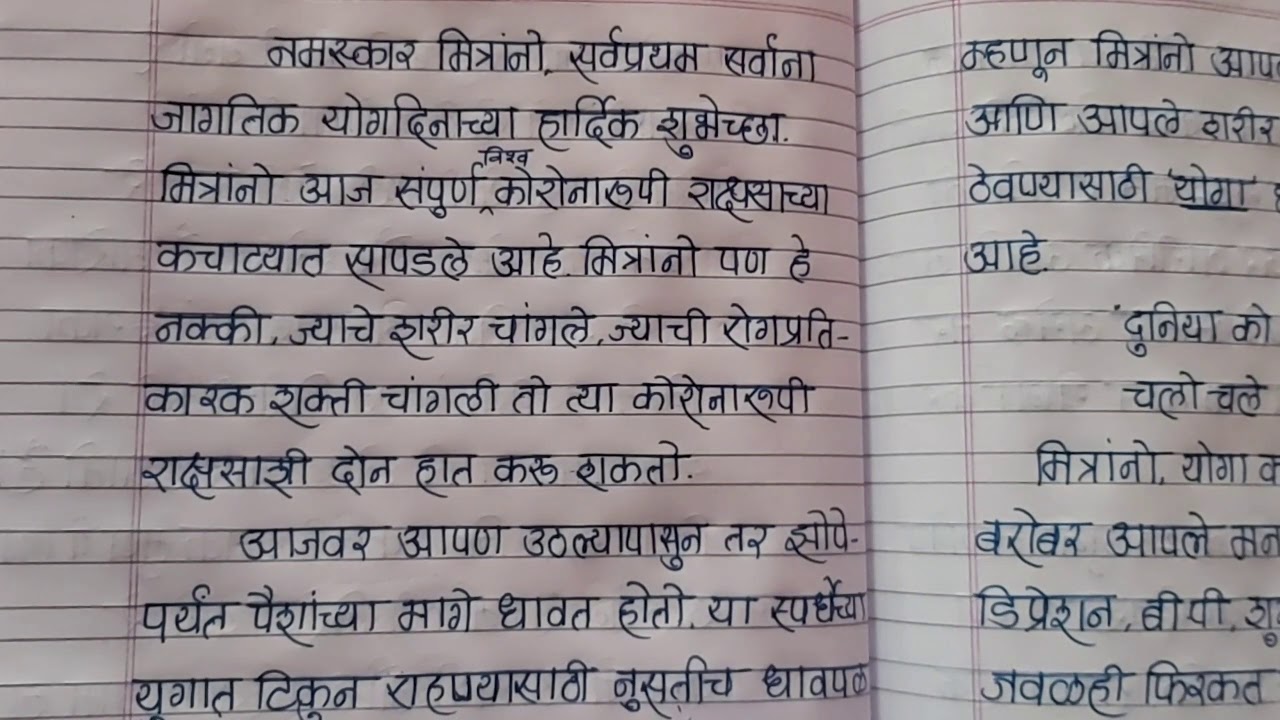 नमस्कार मित्रांनो, सर्वप्रथम सर्वांना
जागतिक योगदिनाच्या हार्दिक शुभेच्छा.
विश्व
मित्रांनो आज संपुर्ण कोरोनारूपी राक्षसाच्या
कचाट्यात सापडले आहे. मित्रांनो पण हे
नक्की, ज्याचे शरीर चांगले, ज्याची रोगप्रति-
कारक शक्ती चांगली तो त्या कोरोनारूपी
राक्षसाशी दोन हात करू शकतो.
आजवर आपण उठल्यापासुन तर झोपे-
पर्यंत पैशांच्या मागे धावत होतो. या स्पर्धेच्या
युगात टिकुन राहण्यासाठी नुसतीच धावपळ
म्हणून मित्रांनो
आणि आपले शरीर
ठेवण्यासाठी 'योगा'
आहे.
"दुनिया को
चलो चले
मित्रांनो, योगा
बरोबर आपले मन
डिप्रेशन, बीपी,
जवळही फिरकत